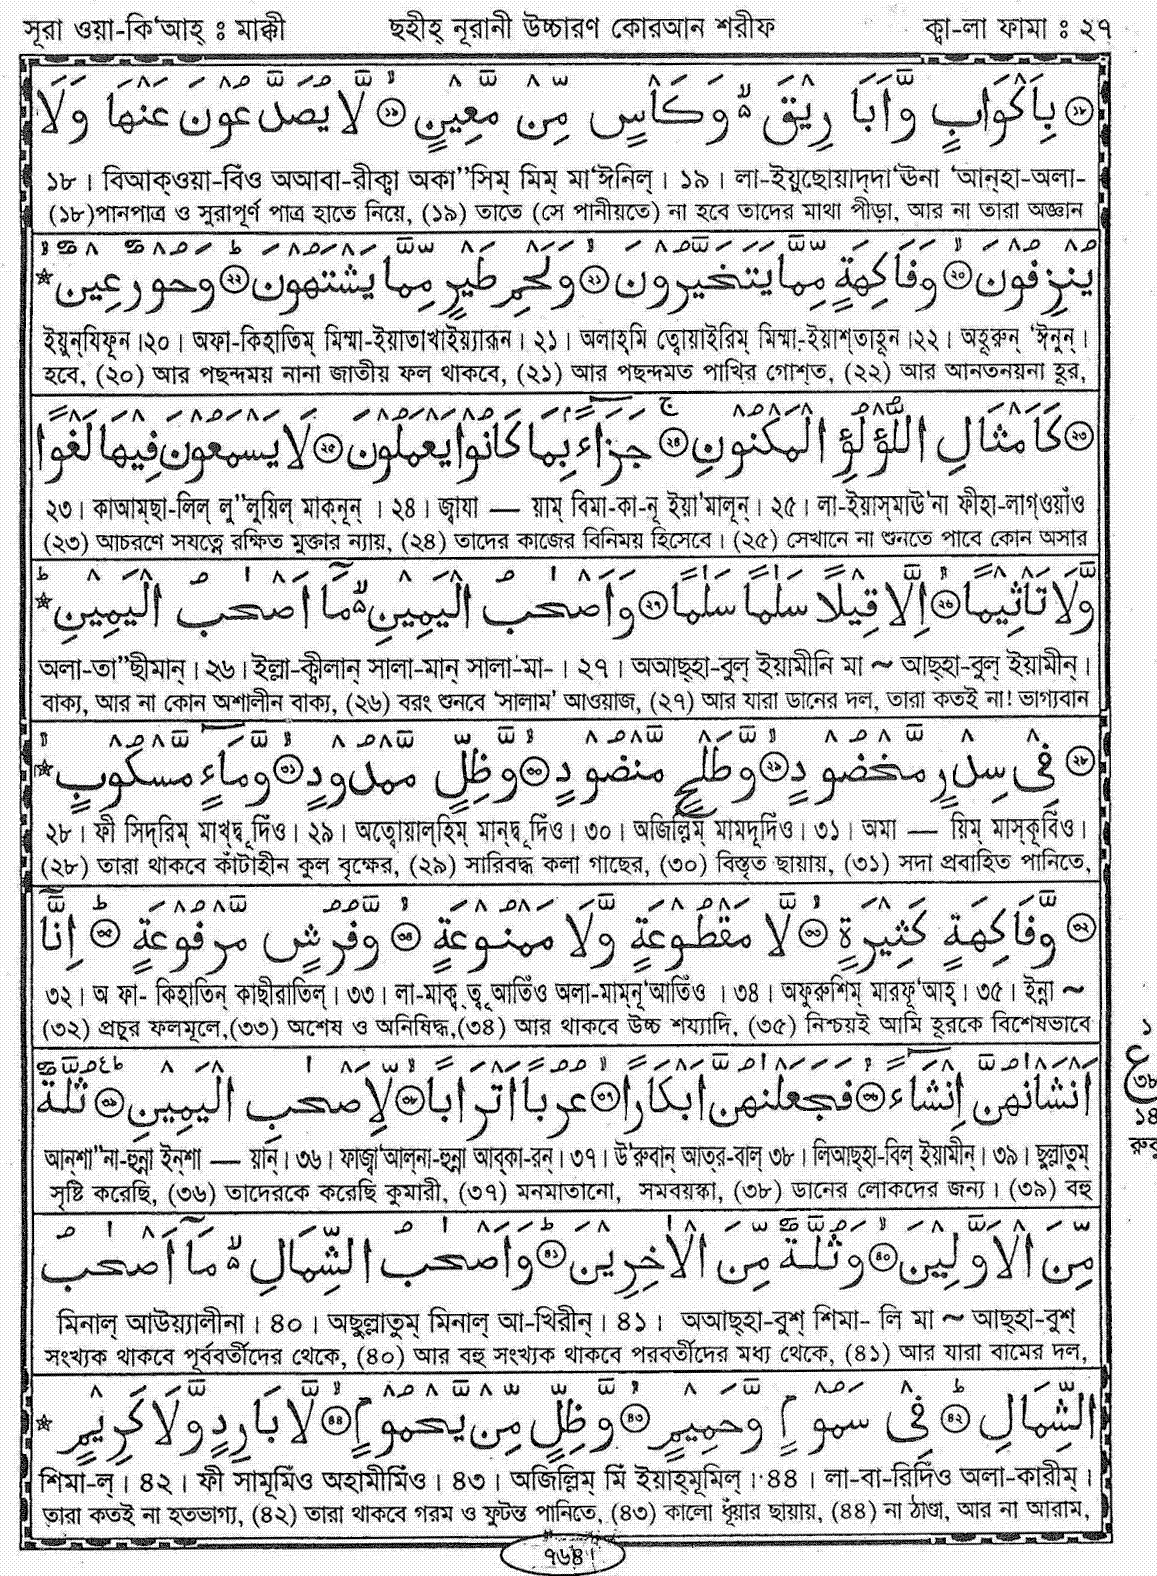 সূরা ওয়া-কি‘আহ্ ঃ মাক্কী ছহীহ্ নূরানী উচ্চারণ কোরআন শরীফ ক্বা-লা ফামা ঃ ২৭
⑱ بِاَكْوَابٍ وَّاَبَارِيْقَ ۙ وَكَاْسٍ مِّنْ مَّعِيْنٍ ⑲ لَّا يُصَدَّعُوْنَ عَنْهَا وَلَا
১৮। বিআক্ওয়া-বিঁও অআবা-রীক্বা অকা”সিম্ মিম্ মা‘ঈনিল্। ১৯। লা-ইয়ুছোয়াদ্দা‘ঊনা ‘আন্হা-অলা-
(১৮)পানপাত্র ও সুরাপূর্ণ পাত্র হাতে নিয়ে, (১৯) তাতে (সে পানীয়তে) না হবে তাদের মাথা পীড়া, আর না তারা অজ্ঞান
يُنْزِفُوْنَ ⑳ وَفَاكِهَةٍ مِّمَّا يَتَخَيَّرُوْنَ ㉑ وَلَحْمِ طَيْرٍ مِّمَّا يَشْتَهُوْنَ ㉒ وَحُوْرٌ عِيْنٌ
ইয়ুন্‌যিফূন।২০। অফা-কিহাতিম্ মিম্মা-ইয়াতাখাইয়্যারূন। ২১। অলাহ্মি ত্বোয়াইরিম্ মিম্মা-ইয়াশ্তাহূন।২২। অহূরুন্ ‘ঈনুন্।
হবে, (২০) আর পছন্দময় নানা জাতীয় ফল থাকবে, (২১) আর পছন্দমত পাখির গোশ্ত, (২২) আর আনতনয়না হূর,
㉓ كَاَمْثَالِ اللُّؤْلُؤِ الْمَكْنُوْنِ ㉔ جَزَآءًۢ بِمَا كَانُوْا يَعْمَلُوْنَ ㉕ لَا يَسْمَعُوْنَ فِيْهَا لَغْوًا
২৩। কাআম্ছা-লিল্ লু”লুয়িল্ মাক্নূন্ । ২৪। জ্বাযা — য়াম্ বিমা-কা-নূ ইয়া‘মালূন্। ২৫। লা-ইয়াস্মাউ‘না ফীহা-লাগ্ওয়াঁও
(২৩) আচরণে সযত্নে রক্ষিত মুক্তার ন্যায়, (২৪) তাদের কাজের বিনিময় হিসেবে। (২৫) সেখানে না শুনতে পাবে কোন অসার
وَّلَا تَاْثِيْمًا ㉖ اِلَّا قِيْلًا سَلٰمًا سَلٰمًا ㉗ وَاَصْحٰبُ الْيَمِيْنِ ۙ مَآ اَصْحٰبُ الْيَمِيْنِ
অলা-তা”ছীমান্। ২৬। ইল্লা-ক্বীলান্ সালা-মান্ সালা-মা-। ২৭। অআছ্হা-বুল্ ইয়ামীনি মা ~ আছ্হা-বুল্ ইয়ামীন্।
বাক্য, আর না কোন অশালীন বাক্য, (২৬) বরং শুনবে ‘সালাম’ আওয়াজ, (২৭) আর যারা ডানের দল, তারা কতই না! ভাগ্যবান
㉘ فِيْ سِدْرٍ مَّخْضُوْدٍ ㉙ وَّطَلْحٍ مَّنْضُوْدٍ ㉚ وَّظِلٍّ مَّمْدُوْدٍ ㉛ وَّمَآءٍ مَّسْكُوْبٍ
২৮। ফী সিদ্‌রিম্ মাখ্দ্বূদিঁও। ২৯। অত্বোয়াল্হিম্ মান্দ্বূদিঁও। ৩০। অজিল্লিম্ মামদূদিঁও। ৩১। অমা — য়িম্ মাস্কূবিঁও।
(২৮) তারা থাকবে কাঁটাহীন কুল বৃক্ষের, (২৯) সারিবদ্ধ কলা গাছের, (৩০) বিস্তৃত ছায়ায়, (৩১) সদা প্রবাহিত পানিতে,
㉜ وَّفَاكِهَةٍ كَثِيْرَةٍ ㉝ لَّا مَقْطُوْعَةٍ وَّلَا مَمْنُوْعَةٍ ㉞ وَّفُرُشٍ مَّرْفُوْعَةٍ ㉟ اِنَّآ
৩২। অ ফা- কিহাতিন্ কাছীরাতিল্। ৩৩। লা-মাক্ব্ত্বূআতিঁও অলা-মাম্নূ‘আতিঁও । ৩৪। অফুরুশিম্ মারফূ‘আহ্। ৩৫। ইন্না ~
(৩২) প্রচুর ফলমূলে,(৩৩) অশেষ ও অনিষিদ্ধ,(৩৪) আর থাকবে উচ্চ শয্যাদি, (৩৫) নিশ্চয়ই আমি হূরকে বিশেষভাবে
اَنْشَاْنٰهُنَّ اِنْشَآءً ㊱ فَجَعَلْنٰهُنَّ اَبْكَارًا ㊲ عُرُبًا اَتْرَابًا ㊳ لِّاَصْحٰبِ الْيَمِيْنِ ㊴ ثُلَّةٌ
আন্শা”না-হুন্না ইন্শা — য়ান্। ৩৬। ফাজ্বা‘আল্না-হুন্না আব্কা-রন্। ৩৭। উ‘রুবান্ আত্‌র-বাল্ ৩৮। লিআছ্হা-বিল্ ইয়ামীন্। ৩৯। ছুল্লাতুম্
সৃষ্টি করেছি, (৩৬) তাদেরকে করেছি কুমারী, (৩৭) মনমাতানো, সমবয়স্কা, (৩৮) ডানের লোকদের জন্য। (৩৯) বহু
১
ع
৩৮
১৪
রুকু
مِّنَ الْاَوَّلِيْنَ ㊵ وَثُلَّةٌ مِّنَ الْاٰخِرِيْنَ ㊶ وَاَصْحٰبُ الشِّمَالِ ۙ مَآ اَصْحٰبُ
মিনাল্ আউয়্যালীনা। ৪০। অছুল্লাতুম্ মিনাল্ আ-খিরীন্। ৪১। অআছ্হা-বুশ্ শিমা- লি মা ~ আছ্হা-বুশ্
সংখ্যক থাকবে পূর্ববর্তীদের থেকে, (৪০) আর বহু সংখ্যক থাকবে পরবর্তীদের মধ্য থেকে, (৪১) আর যারা বামের দল,
الشِّمَالِ ㊷ فِيْ سَمُوْمٍ وَّحَمِيْمٍ ㊸ وَّظِلٍّ مِّنْ يَّحْمُوْمٍ ㊹ لَّا بَارِدٍ وَّلَا كَرِيْمٍ
শিমা-ল্। ৪২। ফী সামূমিঁও অহামীমিঁও। ৪৩। অজিল্লিম্ মিঁ ইয়াহ্মূমিল্। ৪৪। লা-বা-রিদিঁও অলা-কারীম্।
তারা কতই না হতভাগ্য, (৪২) তারা থাকবে গরম ও ফুটন্ত পানিতে, (৪৩) কালো ধুঁয়ার ছায়ায়, (৪৪) না ঠাণ্ডা, আর না আরাম,
৭৬৪